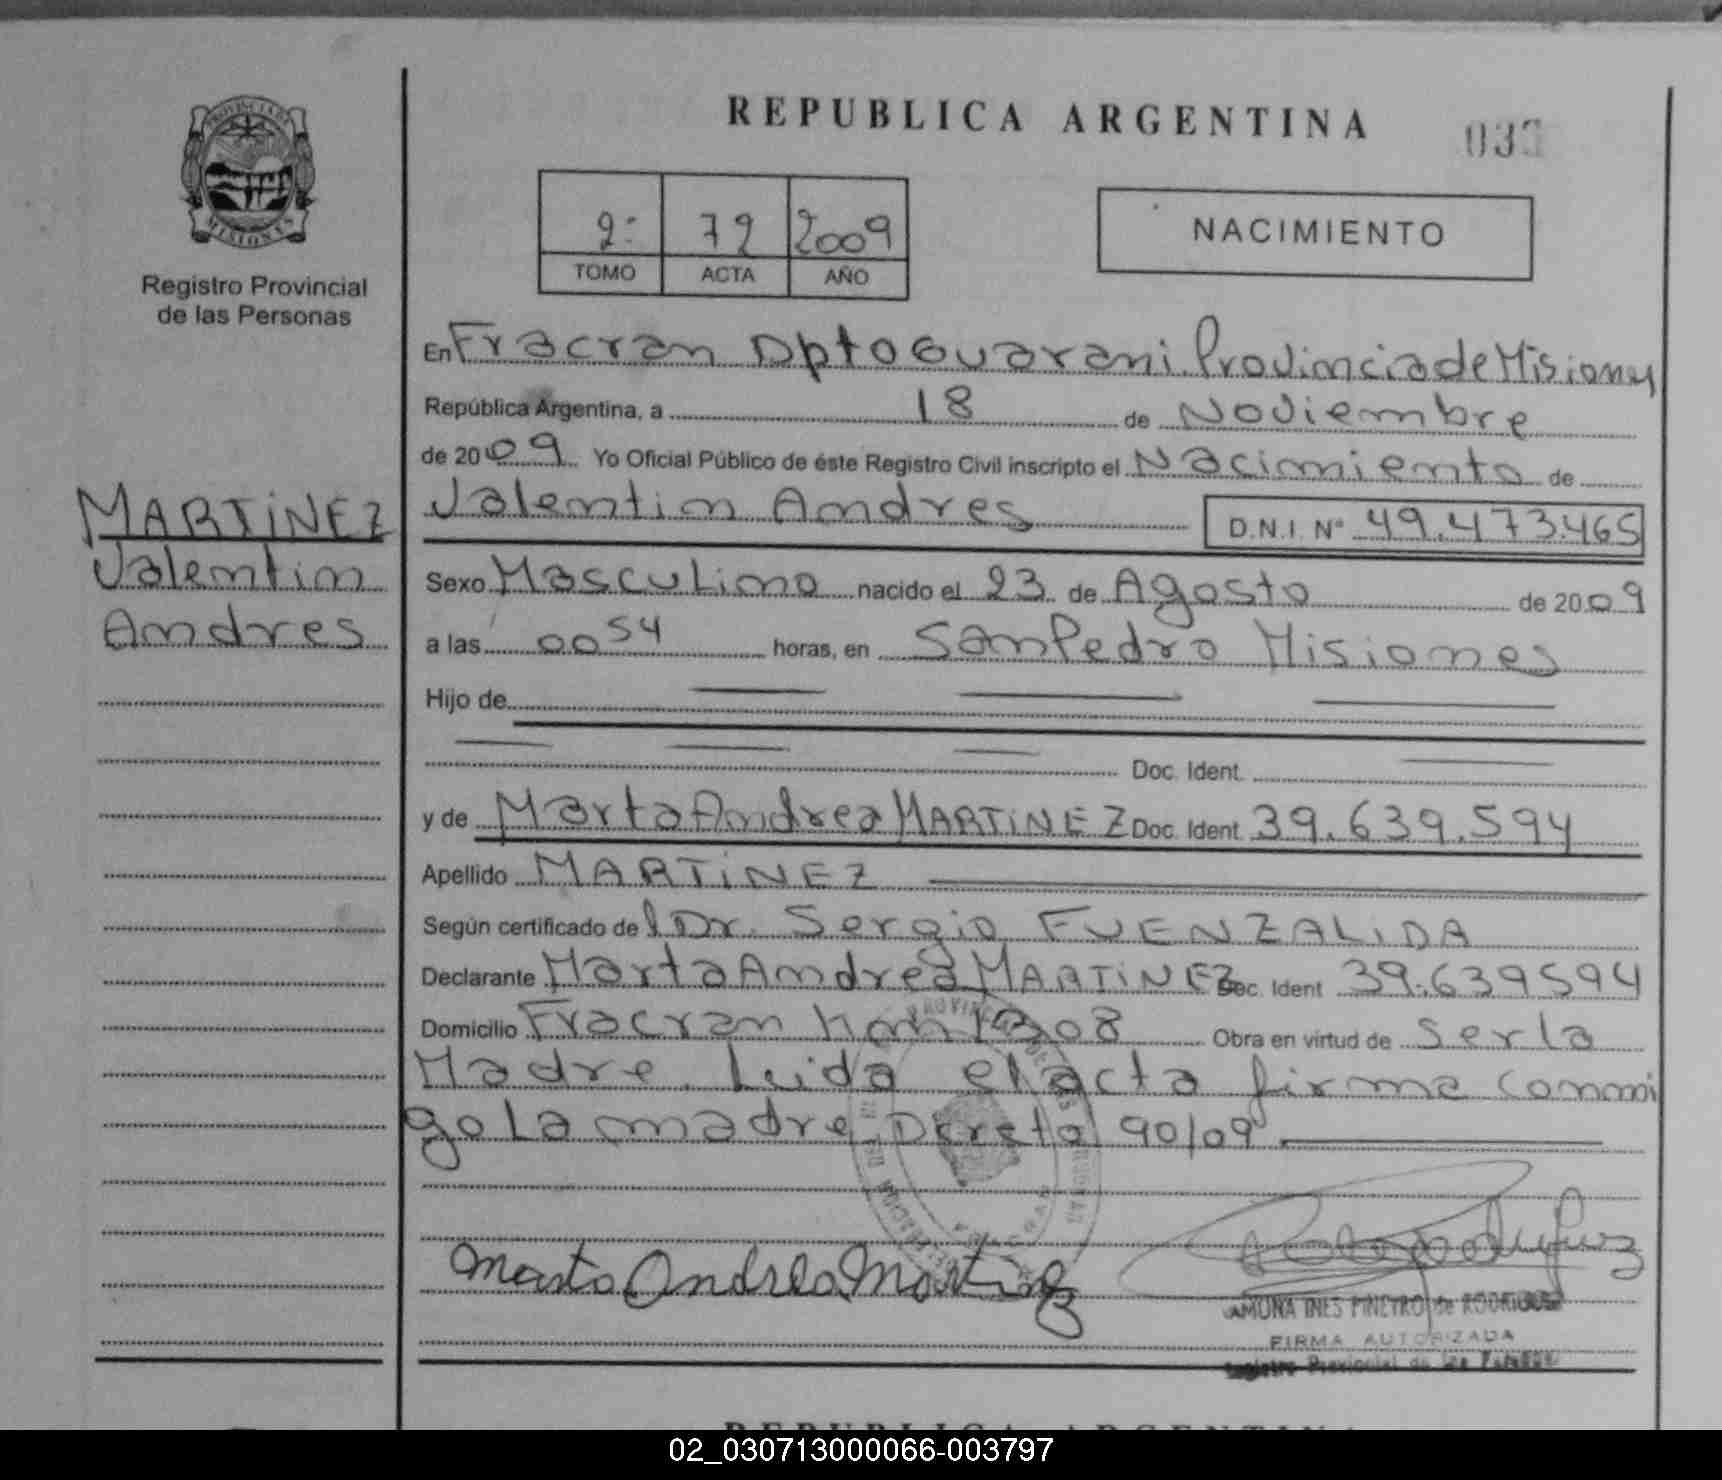 REPUBLICA ARGENTINA
PROVINCIA DE
MISIONES
Registro Provincial
de las Personas
2:
72
2009
TOMO
ACTA
AÑO
NACIMIENTO
En Fracran Dpto Guarani Provincia de Misiones
República Argentina, a 18 de Noviembre
de 2009 Yo Oficial Público de éste Registro Civil inscripto el Nacimiento de
MARTiNEZ
Valentin
Andres
Valentin Andres D.N.I. Nº 49.473.465
Sexo Masculino nacido el 23 de Agosto de 2009
a las 00 54 horas, en San Pedro Misiones
Hijo de
Doc. Ident.
y de Marta Andrea MARTiNEZ Doc. Ident. 39.639.594
Apellido MARTiNEZ
Según certificado de Dr. Sergio FUENZALIDA
Declarante Marta Andrea MARTiNEZ Doc. Ident 39.639594
Domicilio Fracran km 1308 Obra en virtud de ser la
Madre. Leida el acta firma conmi
go la madre. Dcreto 90/09
Marta Andrea Martinez
INES PIÑEYRO de RODRIGUEZ
FIRMA AUTORIZADA
Registro Provincial de las Personas
REPUBLICA ARGENTINA
02_030713000066-003797